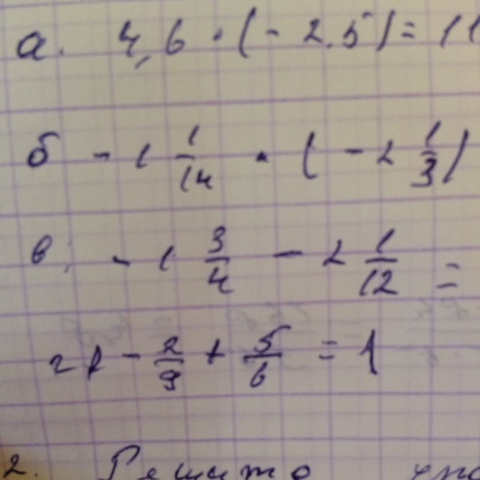 а. 4,6 · (- 2,5) = 11
б - 1 1/14 · ( - 2 1/3 )
в. - 1 3/4 - 2 1/12 =
г) - 2/9 + 5/6 = 1
2. Решите